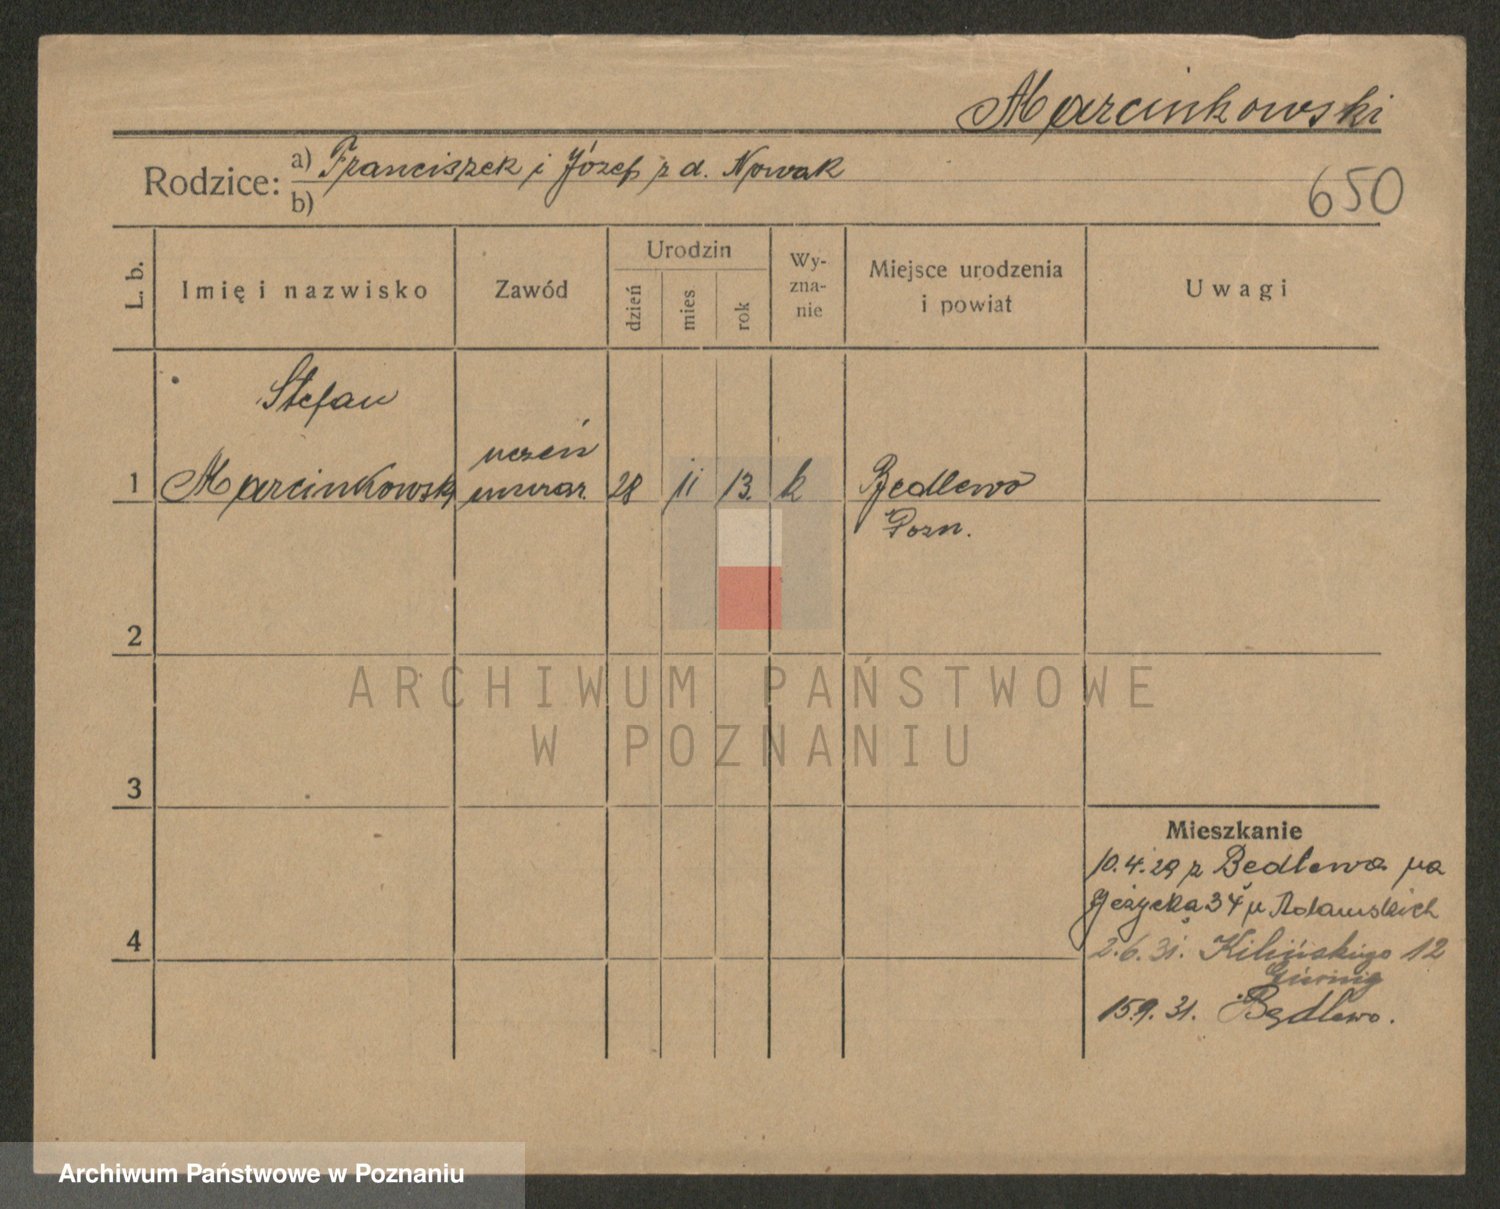 Marcinkowski
Rodzice: a) Franciszek i Józef z d. Nowak
b)
650
L. b.
Imię i nazwisko
Zawód
Urodzin
dzień
mies
rok
Wy-
zna-
nie
Miejsce urodzenia
i powiat
Uwagi
Stefan
uczeń
1 Marcinkowski murar 28 11 13. k Będlewo
Pozn.
2
3
4
Mieszkanie
10.4.29 z Będlewa na
Jeżycka 34 u Adamskich
2.6.31. Kilińskiego 12
15.9.31. Będlewo.
ARCHIWUM PAŃSTWOWE
W POZNANIU
Archiwum Państwowe w Poznaniu